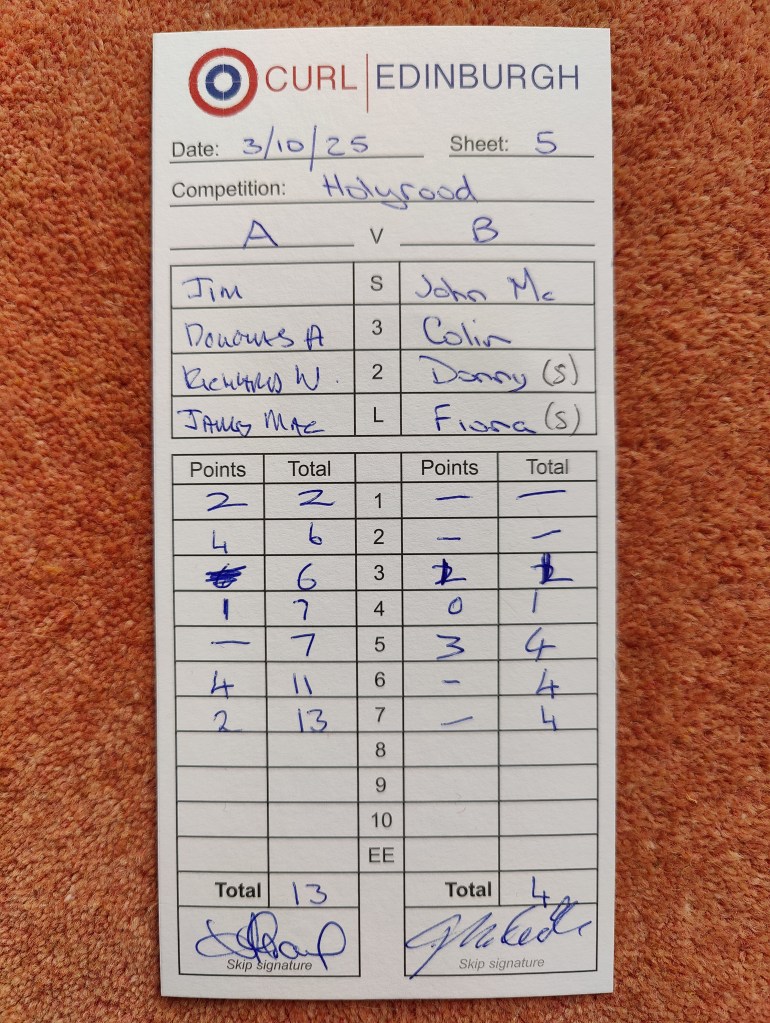 CURL | EDINBURGH
Date: 3/10/25 Sheet: 5
Competition: Holyrood
A V B
Jim S John Mc
Douglas A 3 Colin
Richard W. 2 Danny (S)
James Mac L Fiona (S)
Points Total Points Total
2 2 1 — —
4 6 2 — —
6 3 1 1
1 7 4 0 1
— 7 5 3 4
4 11 6 - 4
2 13 7 — 4
8
9
10
EE
Total 13 Total 4
Skip signature Skip signature